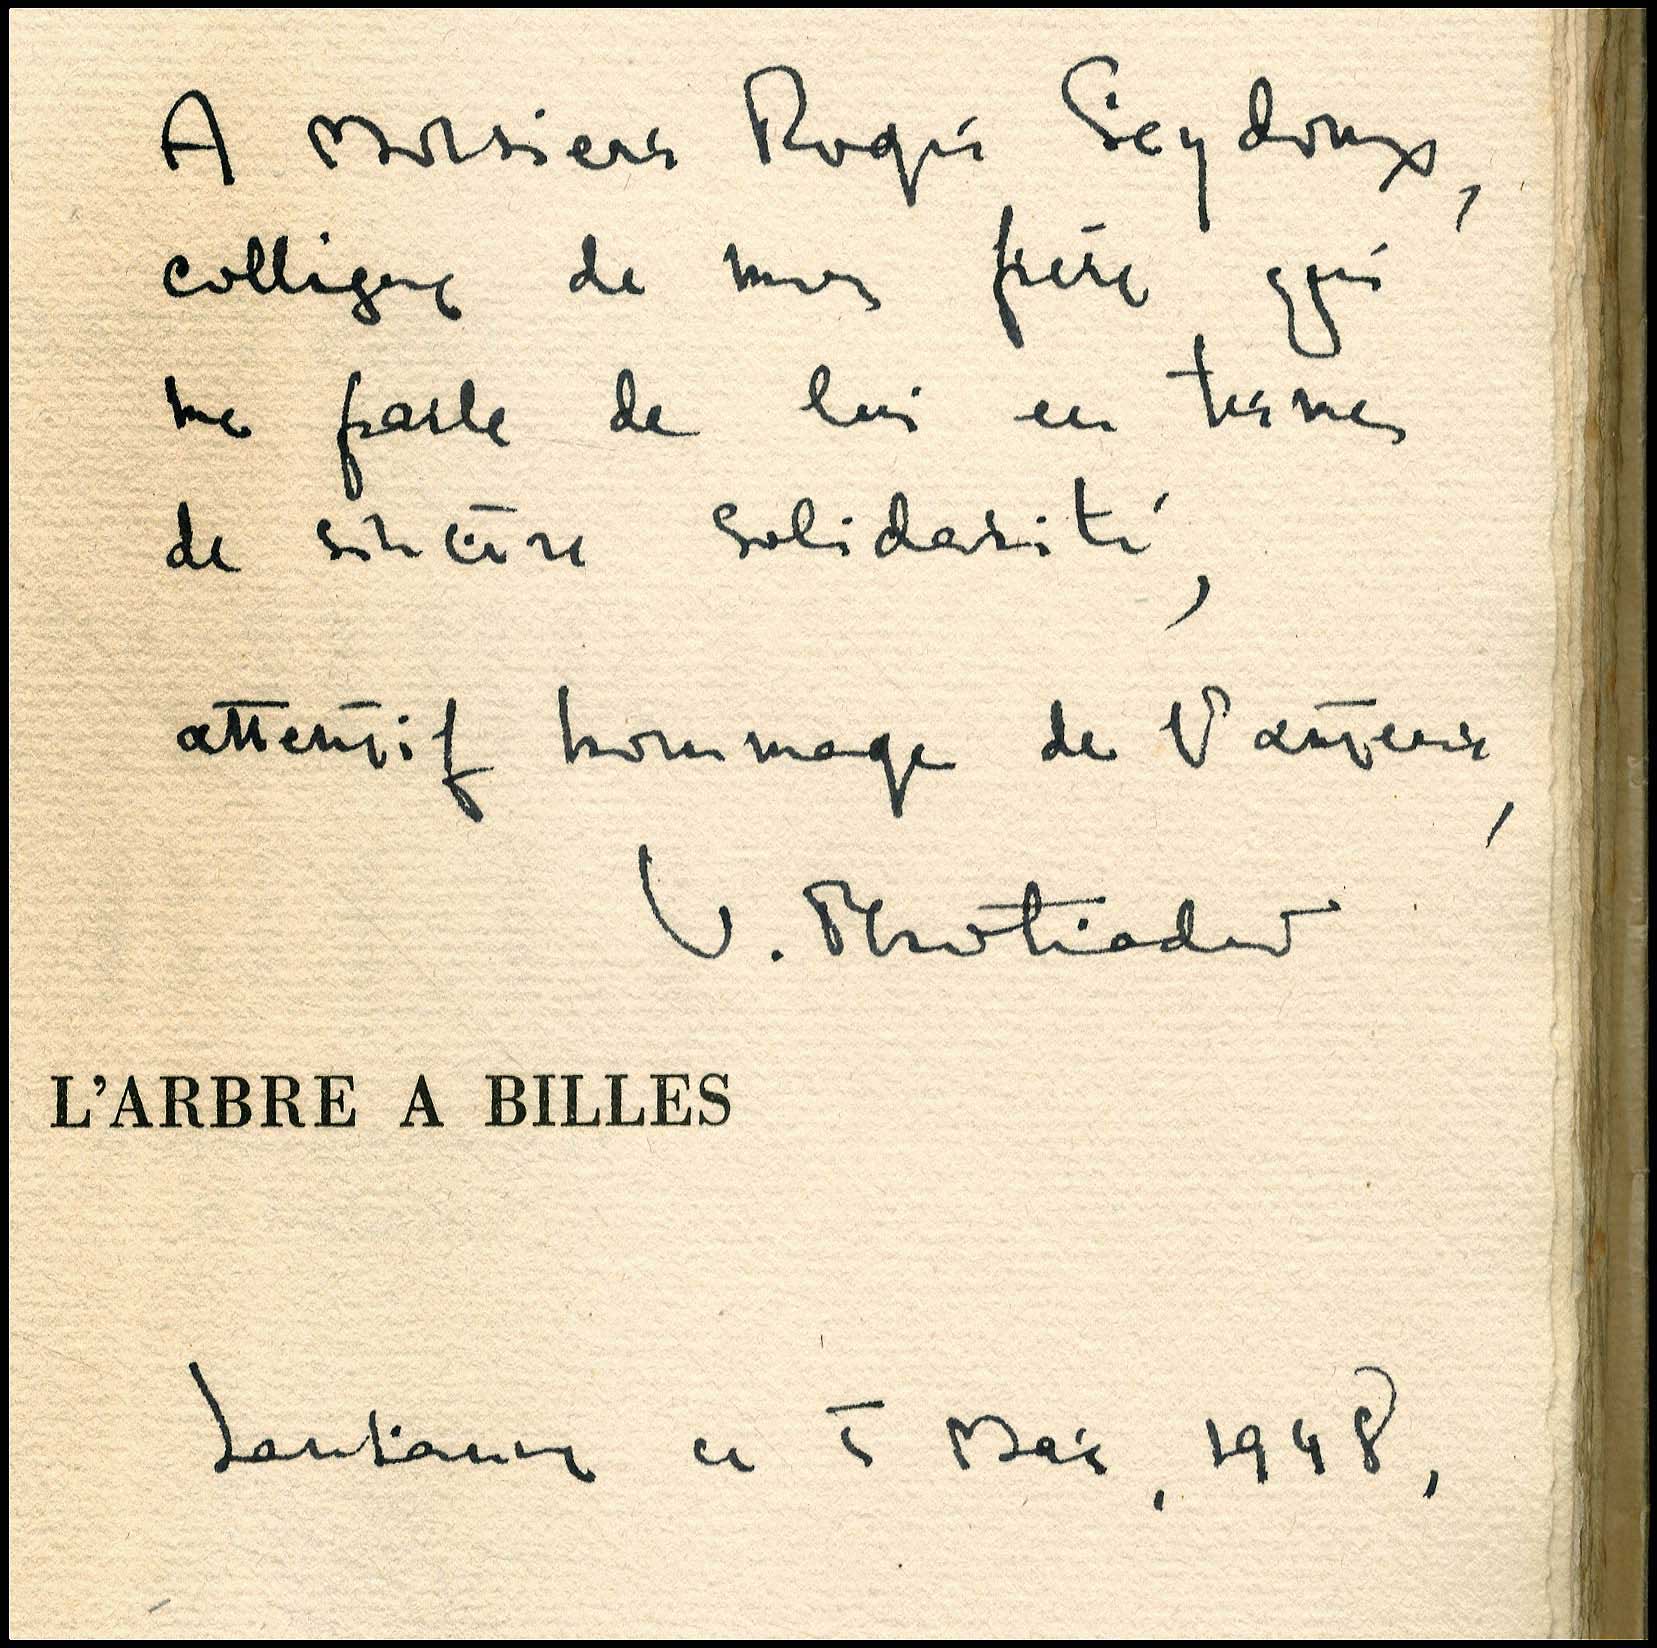 A Monsieur Roger Seydoux,
collègue de mon frère qui
me parle de lui en termes
de sincère solidarité,
attentif hommage de l'auteur,
V.
L'ARBRE A BILLES
Lausanne ce 5 Mai, 1948,